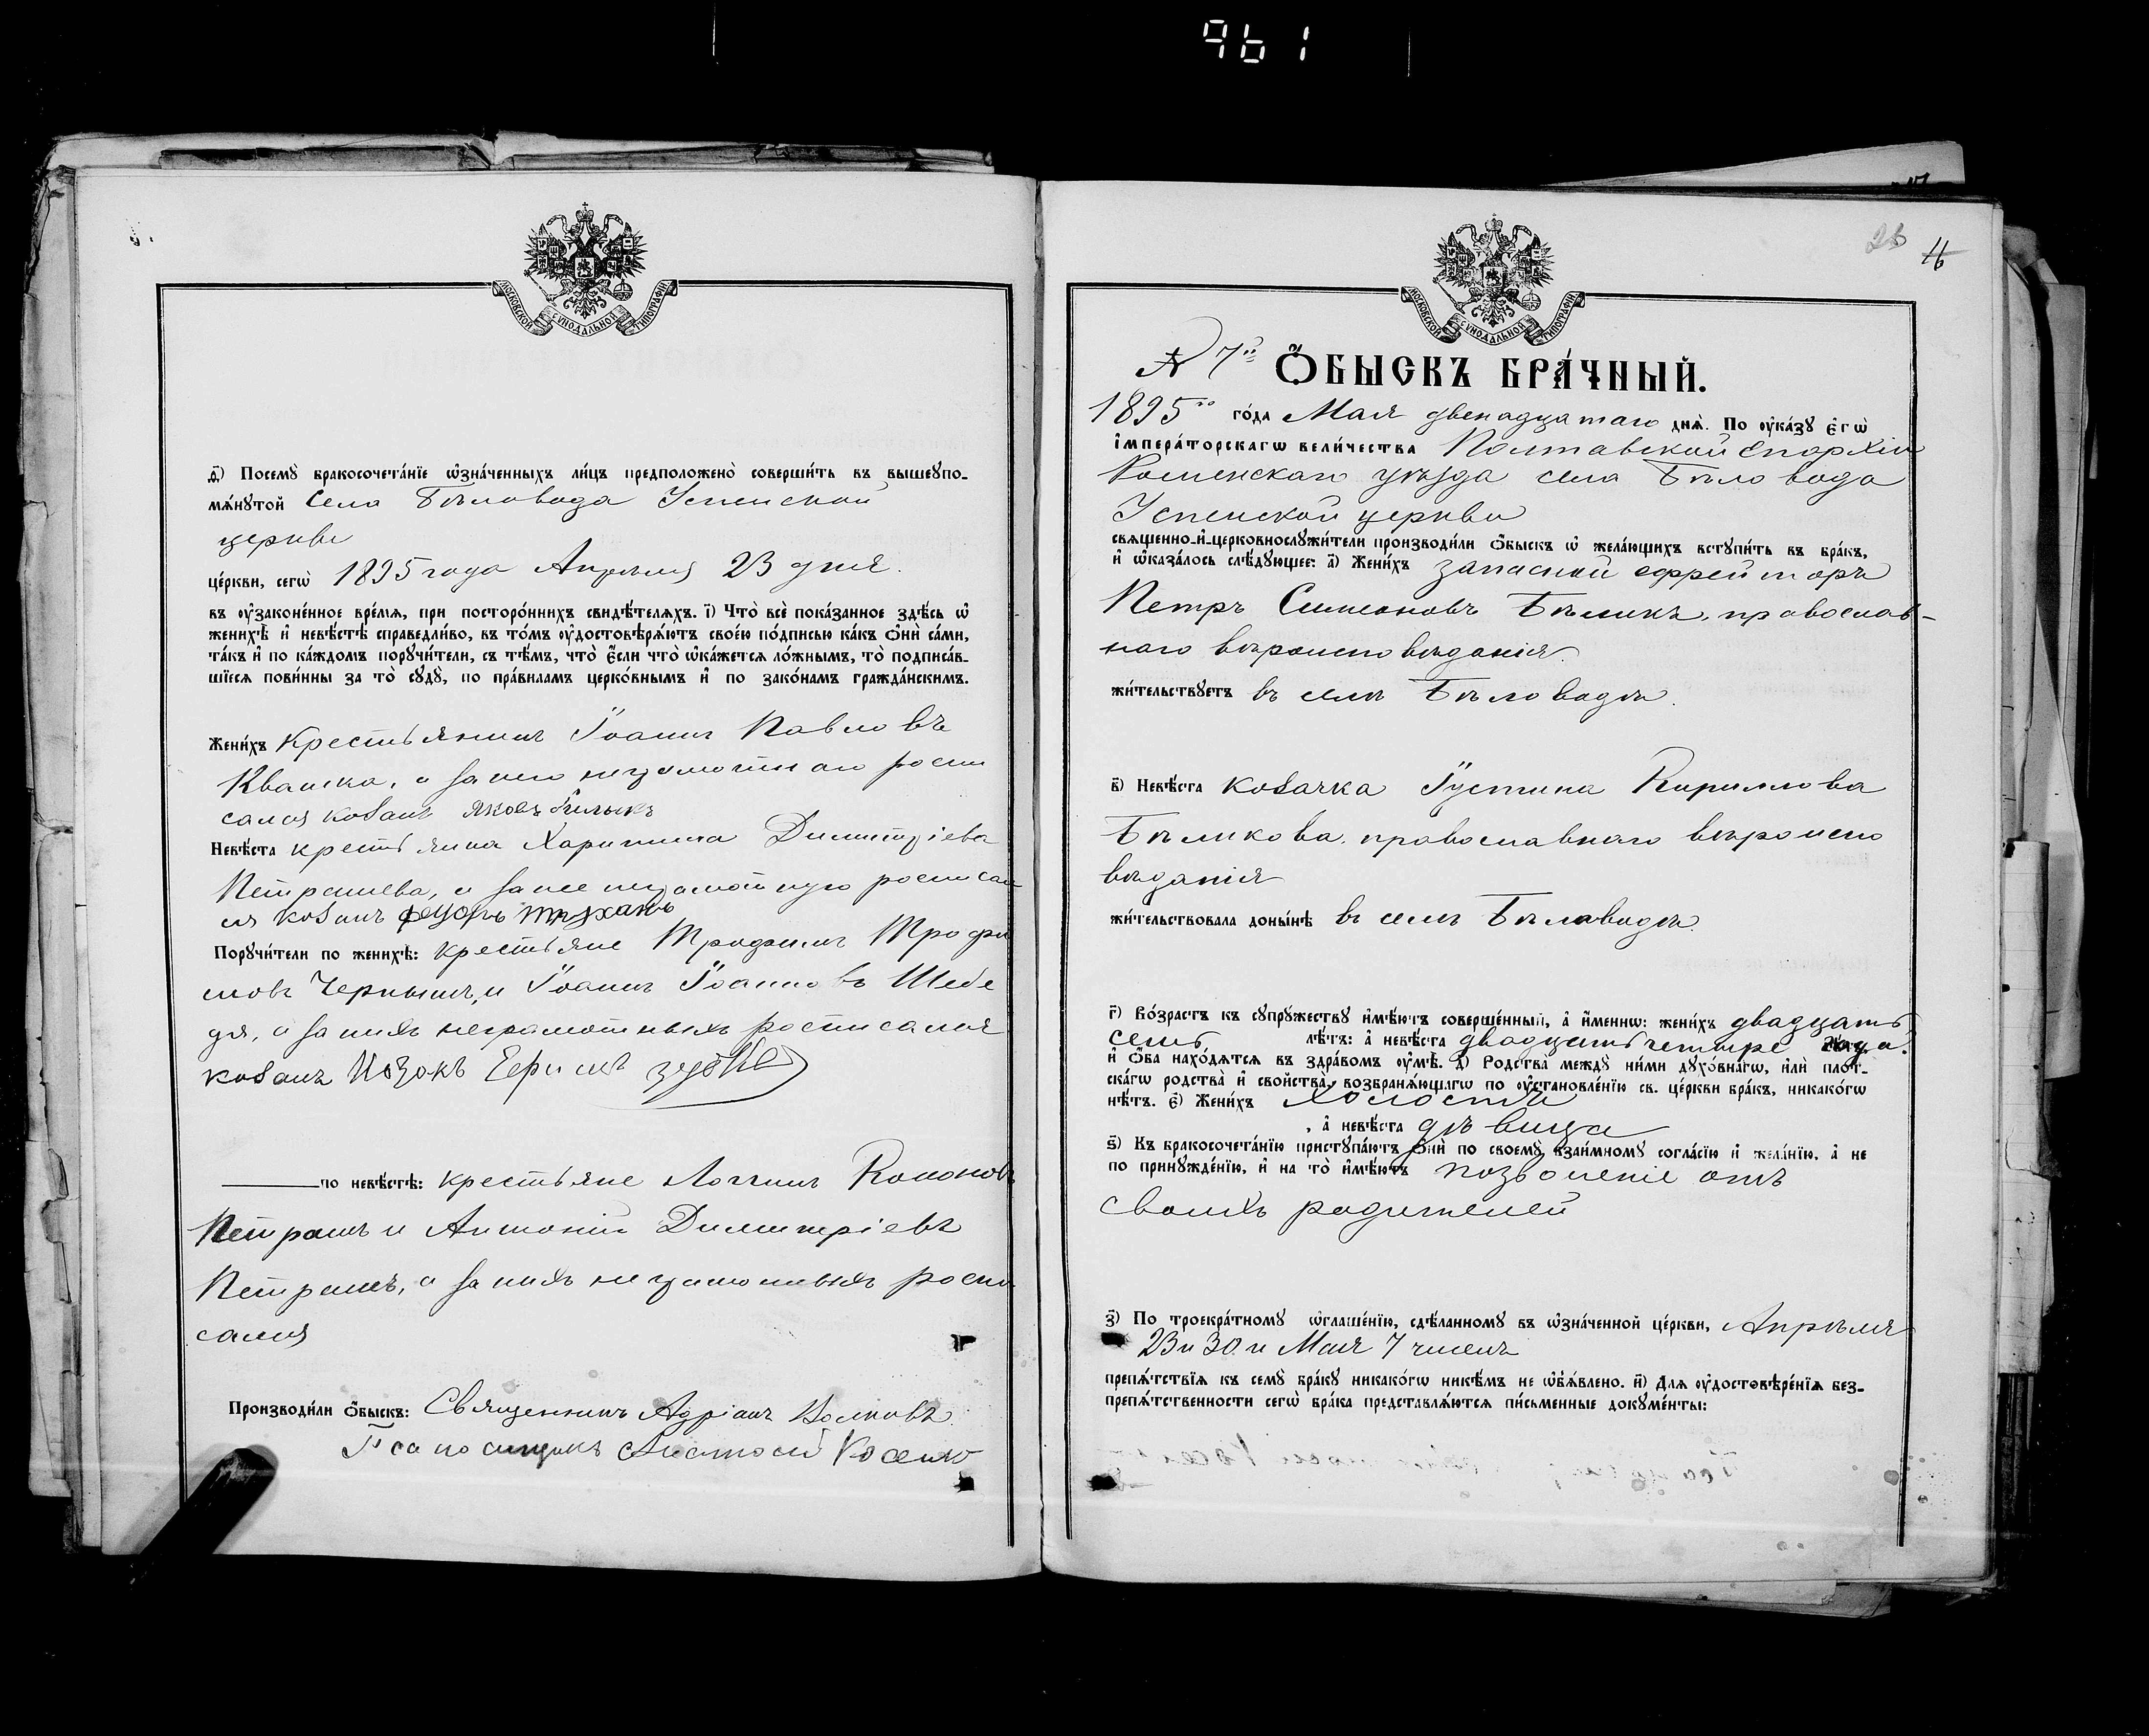 961
МОСКОВСКОЙ СѴНОДАЛЬНОЙ ТИПОГРАФІИ
ѳ҃) Посемꙋ̀ бракосочета́нїе ѡ҆зна́ченныхъ ли́цъ предположено̀ соверши́ть въ вышеꙋпо-
мѧ́нꙋтой села Бѣловода Успенской
церкви
це́ркви, сегѡ̀ 1895 года Апрѣля 23 дня.
въ ᲂу҆зако́ненное вре́мѧ, при посторо́ннихъ свидѣ́телѧхъ. і҃) Что̀ всѐ пока́занное здѣ́сь ѡ҆
женихѣ̀ и҆ невѣ́стѣ справедли́во, въ то́мъ ᲂу҆достовѣрѧ́ютъ свое́ю по́дписью ка́къ ѻ҆нѝ са́ми,
та́къ и҆ по ка́ждомъ порꙋчи́тели, съ тѣ́мъ, что̀ є҆́сли что̀ ѡ҆ка́жетсѧ ло́жнымъ, то̀ подписа́в-
шїесѧ пови́нны за то̀ сꙋдꙋ̀, по пра́виламъ церко́внымъ и҆ по зако́намъ гражда́нскимъ.
Жени́хъ крестьянинъ Іоаннъ Павловъ
Квашка, а за него неграмотнаго роспи
сался козакъ Яковъ Билыкъ
Невѣ́ста крестьянка Харитина Димитріева
Петрашева, а за нее неграмотную росписал
ся козакъ Феѡдоръ Труханъ
Порꙋчи́тели по женихѣ̀: крестьяне Трофимъ Трофи
мовъ Чернышъ, и Іоаннъ Іоанновъ Шебе
дя, а за нихъ неграмотныхъ росписался
козакъ Козакъ Ефимъ Зубко
по невѣ́стѣ: крестьяне Логгинъ Кононовъ
Петрашъ и Антоній Димитріевъ
Петрашъ, а за нихъ неграмотныхъ роспи
сался
Производи́ли ѻ҆́быскъ: Священникъ Адріанъ Волковъ
Псаломщикъ Косенко
26 16
МОСКОВСКОЙ СѴНОДАЛЬНОЙ ТИПОГРАФІИ
№ 7й Ѻ҆́БЫСКЪ БРА́ЧНЫЙ.
1895го го́да Мая двенадцатаго днѧ̀. По ᲂу҆ка́зꙋ є҆гѡ̀
і҆мпера́торскагѡ вели́чества Полтавской Епархіи
Роменскаго уѣзда села Бѣловода
Успенской церкви
свѧще́нно-и҆-церковнослꙋжи́тели производи́ли ѻ҆́быскъ ѡ҆ жела́ющихъ встꙋпи́ть въ бра́къ,
и҆ ѡ҆каза́лось слѣ́дꙋющее: а҃) Жени́хъ запасной ефрейторъ
Петръ Симеоновъ Бѣликъ, православ-
наго вѣроисповѣданія.
жи́тельствꙋетъ въ селѣ Бѣловодѣ.
в҃) Невѣ́ста козачка Іустина Кириллова
Бѣликова, православнаго вѣроиспо
вѣданія
жи́тельствовала доны́нѣ въ селѣ Бѣловодѣ.
г҃) Во́зрастъ къ сꙋпрꙋ́жествꙋ и҆мѣ́ютъ соверше́нный, а҆ и҆́меннѡ: жени́хъ двадцать
семь лѣ́тъ: а҆ невѣ́ста двадцать четыре года.
и҆ ѻ҆́ба нахо́дѧтсѧ въ здра́вомъ ᲂу҆мѣ̀. д҃) Родства̀ междꙋ̀ ни́ми дꙋхо́внагѡ, и҆лѝ пло́т-
ска́гѡ родства̀ и҆ сво́йства, возбранѧ́ющагѡ по ᲂу҆становле́нїю св. це́ркви бра́къ, никако́гѡ
нѣ́тъ. є҃) Жени́хъ холостъ
, а҆ невѣ́ста дѣвица
ѕ҃) Къ бракосочета́нїю пристꙋпа́ютъ ѻ҆нѝ по своемꙋ̀ взаи́мномꙋ согла́сїю и҆ жела́нїю, а҆ не
по принꙋжде́нїю, и҆ на то̀ и҆мѣ́ютъ позволеніе отъ
своихъ родителей
з҃) По троекра́тномꙋ ѡ҆глаше́нїю, сдѣ́ланномꙋ въ ѡ҆зна́ченной це́ркви, Апрѣля
23 и 30 и Мая 7 чиселъ
препѧ́тствїѧ къ семꙋ̀ бра́кꙋ никако́гѡ никѣ́мъ не ѡ҆б̾ѧ́влено. и҃) Длѧ ᲂу҆достовѣре́нїѧ без-
препѧ́тственности сегѡ̀ бра́ка представлѧ́ютсѧ пи́сьменные докꙋме́нты: